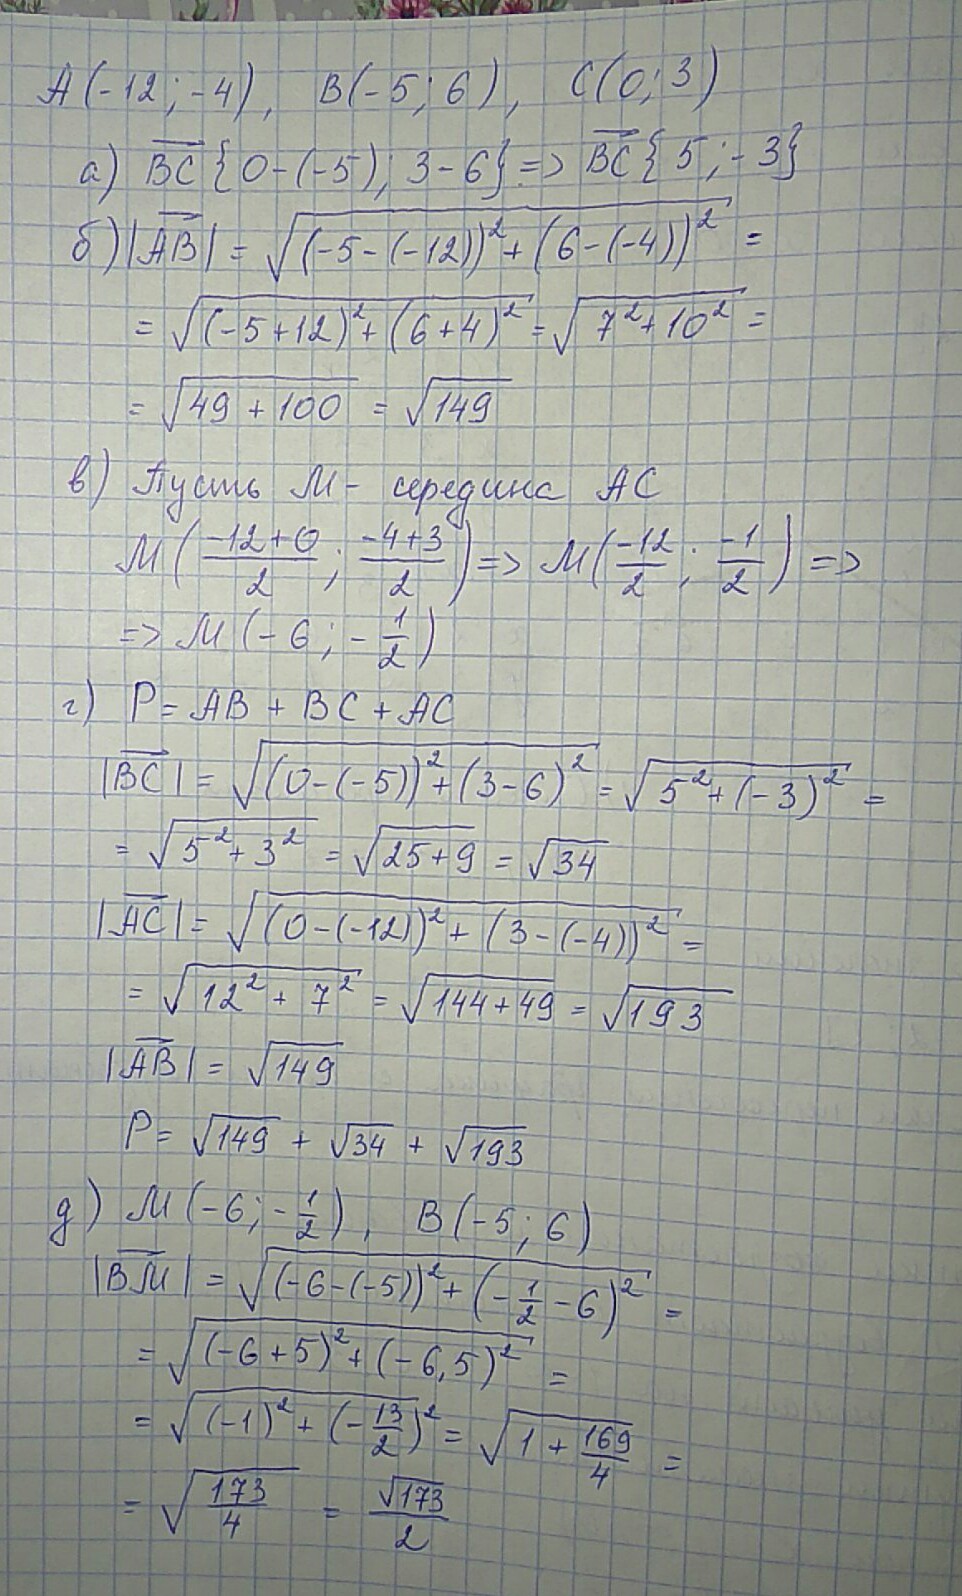 A(-12;-4), B(-5;6), C(0;3)
а) BC{0-(-5); 3-6} => BC{5;-3}
б) |AB| = √((-5-(-12))²+(6-(-4))²) =
= √((-5+12)²+(6+4)²) = √(7²+10²) =
= √(49+100) = √149
в) Пусть М- середина АС
М((-12+0)/2; (-4+3)/2) => М(-12/2; -1/2) =>
=> М(-6; -1/2)
г) P = AB + BC + AC
|BC| = √((0-(-5))²+(3-6)²) = √(5²+(-3)²) =
= √(5²+3²) = √(25+9) = √34
|AC| = √((0-(-12))²+(3-(-4))²) =
= √(12²+7²) = √(144+49) = √193
|AB| = √149
P = √149 + √34 + √193
д) М(-6; -1/2), B(-5; 6)
|BM| = √((-6-(-5))²+(-1/2-6)²) =
= √((-6+5)²+(-6,5)²) =
= √((-1)²+(-13/2)²) = √(1+169/4) =
= √(173/4) = √173/2